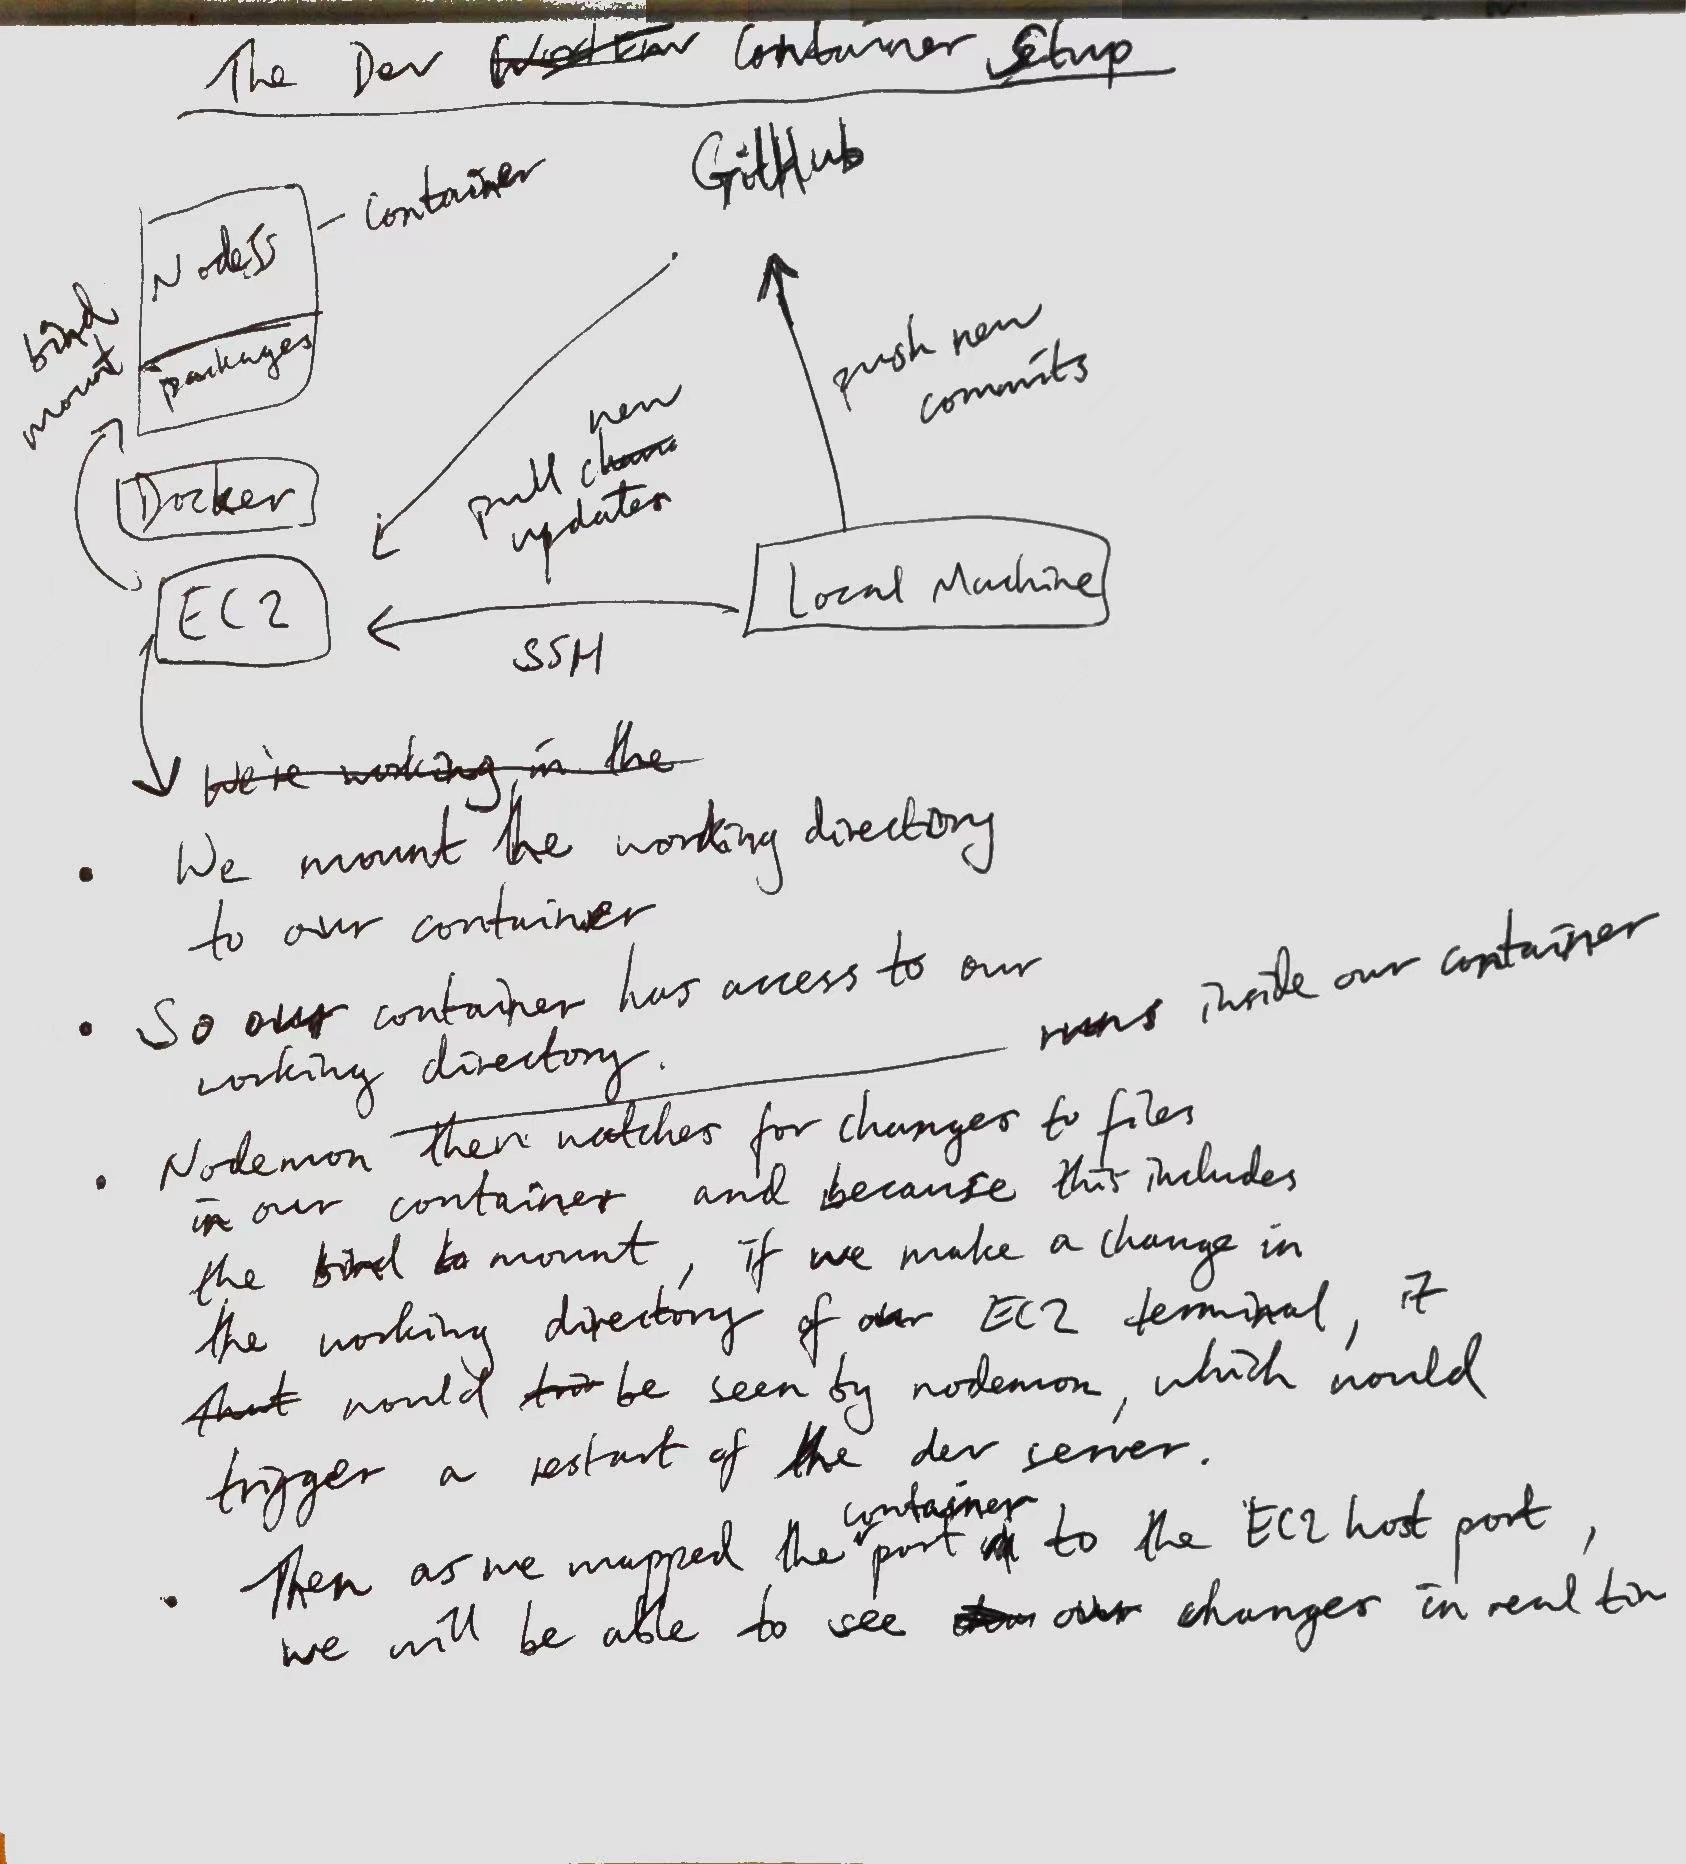 The Dev Container Setup
GitHub
container
NodeJS
packages
bind
mount
push new
commits
new
pull
updates
Docker
EC2
Local Machine
SSH
We're working in the
• We mount the working directory
to our container
• So our container has access to our
working directory.
runs inside our container
• Nodemon then watches for changes to files
in our container and because this includes
the bind mount, if we make a change in
the working directory of our EC2 terminal, it
that would be seen by nodemon, which would
trigger a restart of the dev server.
container
• Then as we mapped the port to the EC2 host port,
we will be able to see our changes in real tim